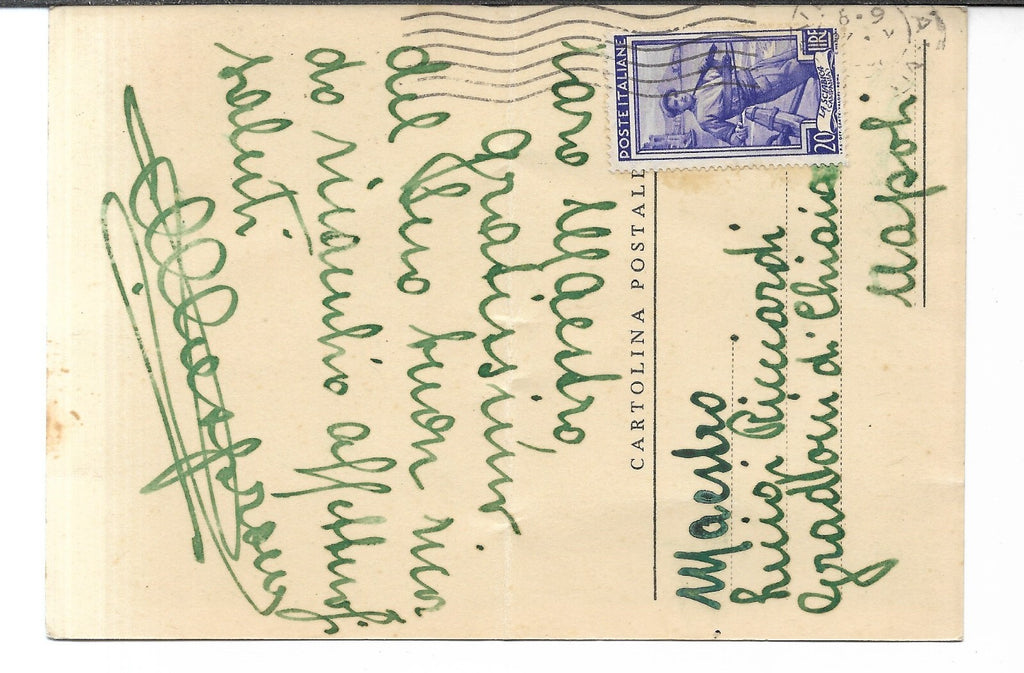 Caro Maestro
gratissimo
del Suo buon ricor
do ricambio affettuosi
saluti
CARTOLINA POSTALE
POSTE ITALIANE
LIRE 20
Maestro
Luigi Ricciardi
Gradoni di Chiaia
Napoli